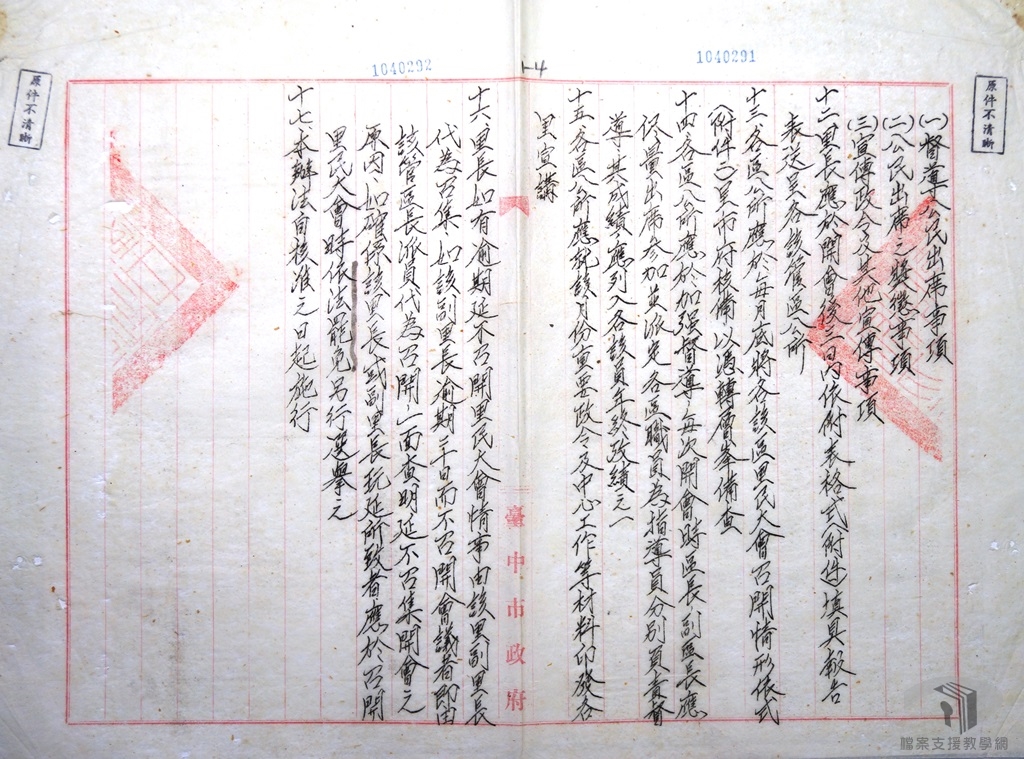 1040291
1040292
1-4
原件不清晰
原件不清晰
(一)督導公民出席事項
(二)公民出席之獎懲事項
(三)宣傳政令及其他宣傳事項
十二里長應於開會後三日內依附表格式(附件 填具報告
表送呈各該管區公所
十三各區公所應於每月底將各該區里民大會召開情形依式
(附件二)呈市府核備以憑轉層峯備查
十四各區公所應於加強督導每次開會時區長副區長應
儘量出席參加並派定各區職員為指導員分別負責督
導其成績應列入各該員年終考績之一
十五各區公所應就該月份重要政令及中心工作等材料印發各
里宣講
十六里長如有逾期延不召開里民大會情事由該里副里長
代為召集如該副里長逾期三日而不召開會議者即由
該管區長派員代為召開一面查明延不召集開會之
原因如確係該里長或副里長玩延所致者應於召開
里民大會時依法罷免另行選舉之
十七本辦法自核准之日起施行
臺中市政府
檔案支援教學網